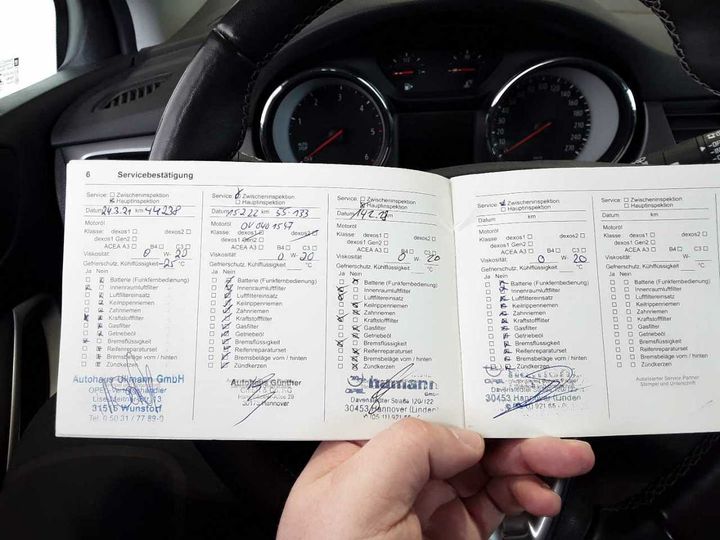 6 Servicebestätigung
Service: Zwischeninspektion
Hauptinspektion
Datum 24.3.21 km 44238
Motoröl
Klasse: dexos1 dexos2
dexos1 Gen2
ACEA A3 B4 C3
Viskosität 0 W- 20
Gefrierschutz, Kühlflüssigkeit -25 °C
Ja Nein
Batterie (Funkfernbedienung)
Innenraumluftfilter
Luftfiltereinsatz
Keilrippenriemen
Zahnriemen
Kraftstofffilter
Gasfilter
Getriebeöl
Bremsflüssigkeit
Reifenreparaturset
Bremsbeläge vorn / hinten
Zündkerzen
GmbH
31515 Wunstorf
Tel. 0 50 31 / 77 89-0
Service: Zwischeninspektion
Hauptinspektion
Datum 15.2.22 km 55 133
Motoröl OV 040 1547
Klasse: dexos1 dexos2
dexos1 Gen2
ACEA A3 B4 C3
Viskosität 0 W- 20
Gefrierschutz, Kühlflüssigkeit °C
Ja Nein
Batterie (Funkfernbedienung)
Innenraumluftfilter
Luftfiltereinsatz
Keilrippenriemen
Zahnriemen
Kraftstofffilter
Gasfilter
Getriebeöl
Bremsflüssigkeit
Reifenreparaturset
Bremsbeläge vorn / hinten
Zündkerzen
Autohaus Günther
Hannover
Service: Zwischeninspektion
Hauptinspektion
Datum km
Motoröl
Klasse: dexos1 dexos2
dexos1 Gen2
ACEA A3 B4 C3
Viskosität 0 W- 20
Gefrierschutz, Kühlflüssigkeit °C
Ja Nein
Batterie (Funkfernbedienung)
Innenraumluftfilter
Luftfiltereinsatz
Keilrippenriemen
Zahnriemen
Kraftstofffilter
Gasfilter
Getriebeöl
Bremsflüssigkeit
Reifenreparaturset
Bremsbeläge vorn / hinten
Zündkerzen
hamann
GmbH
Davenstedter Straße 120/122
30453 Hannover (Linden)
Service: Zwischeninspektion
Hauptinspektion
Datum km
Motoröl
Klasse: dexos1 dexos2
dexos1 Gen2
ACEA A3 B4 C3
Viskosität 0 W- 20
Gefrierschutz, Kühlflüssigkeit °C
Ja Nein
Batterie (Funkfernbedienung)
Innenraumluftfilter
Luftfiltereinsatz
Keilrippenriemen
Zahnriemen
Kraftstofffilter
Gasfilter
Getriebeöl
Bremsflüssigkeit
Reifenreparaturset
Bremsbeläge vorn / hinten
Zündkerzen
30453 Hannover (Linden)
Service: Zwischeninspektion
Hauptinspektion
Datum km
Motoröl
Klasse: dexos1 dexos2
dexos1 Gen2
ACEA A3 B4 C3
Viskosität W-
Gefrierschutz, Kühlflüssigkeit °C
Ja Nein
Batterie (Funkfernbedienung)
Innenraumluftfilter
Luftfiltereinsatz
Keilrippenriemen
Zahnriemen
Kraftstofffilter
Gasfilter
Getriebeöl
Bremsflüssigkeit
Reifenreparaturset
Bremsbeläge vorn / hinten
Zündkerzen
Autorisierter Service Partner
Stempel und Unterschrift